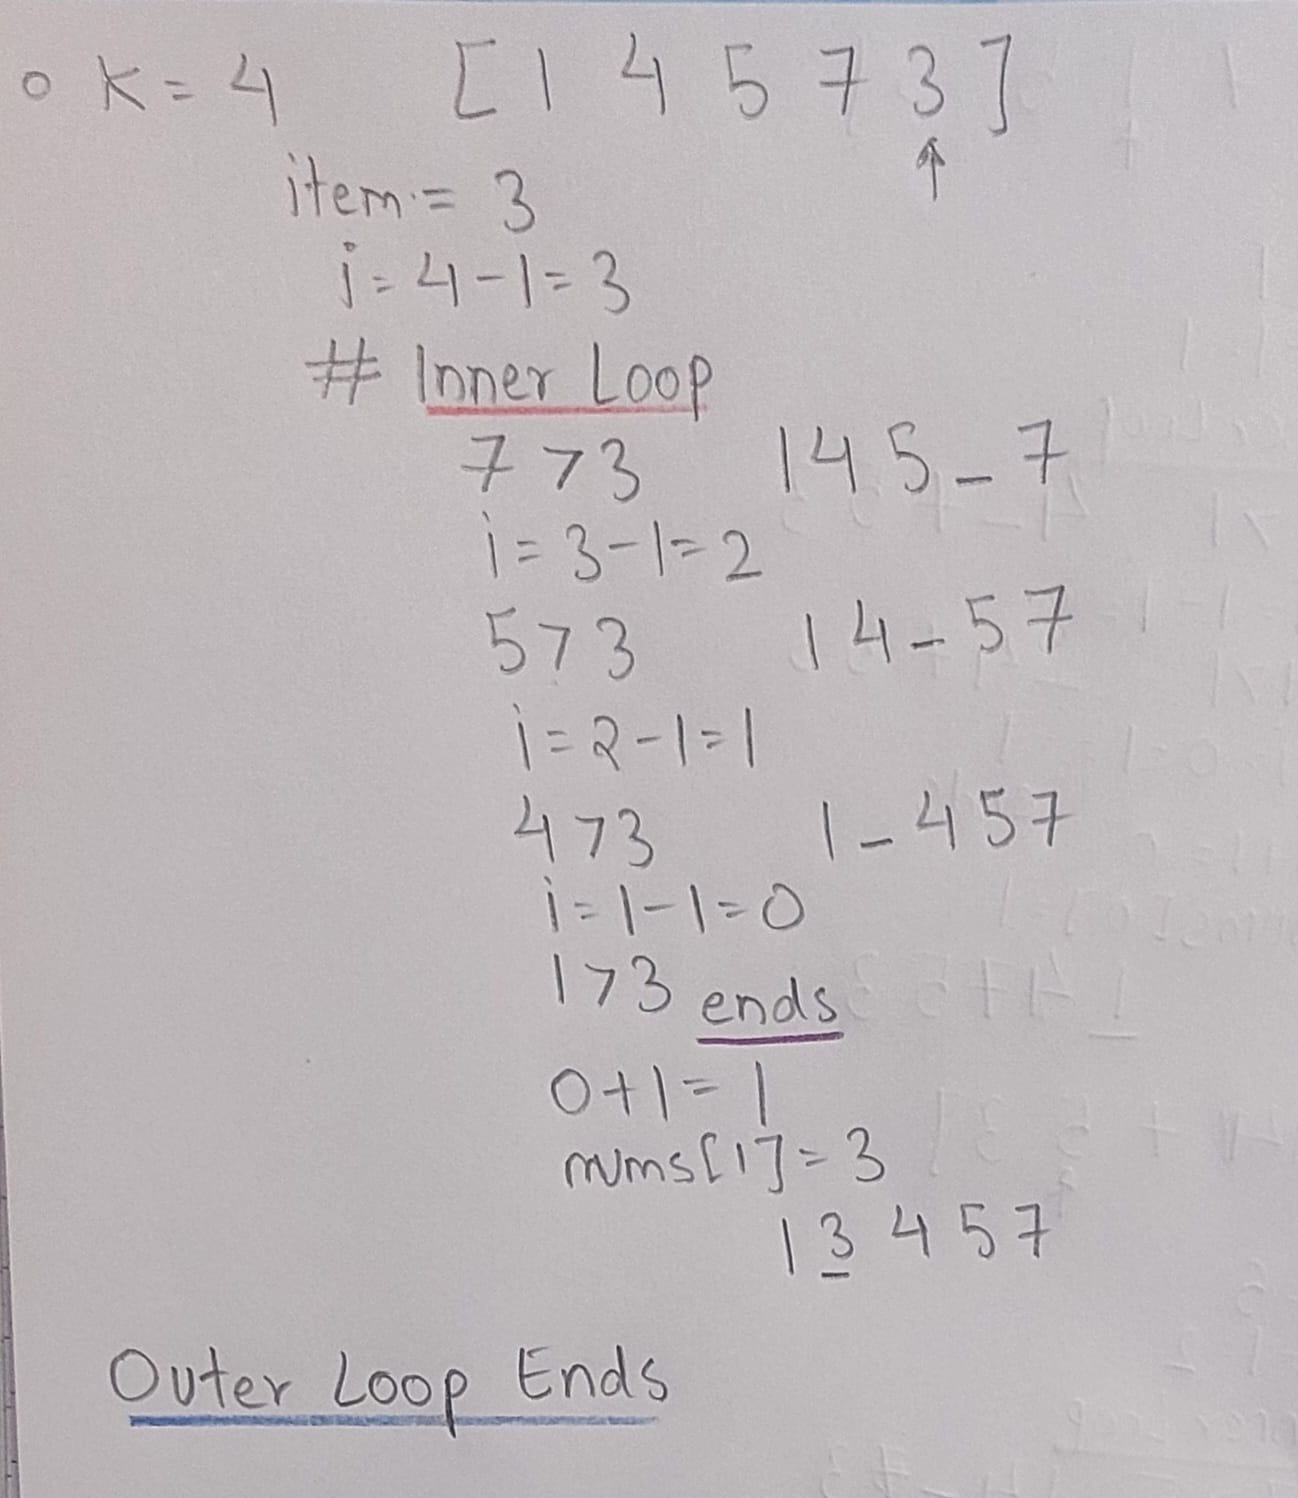 o K = 4 [ 1 4 5 7 3 ]
↑
item = 3
i = 4 - 1 = 3
# Inner Loop
7 > 3 1 4 5 _ 7
i = 3 - 1 = 2
5 > 3 1 4 _ 5 7
i = 2 - 1 = 1
4 > 3 1 _ 4 5 7
i = 1 - 1 = 0
1 > 3 ends
0 + 1 = 1
nums[1] = 3
1 3 4 5 7
Outer Loop Ends